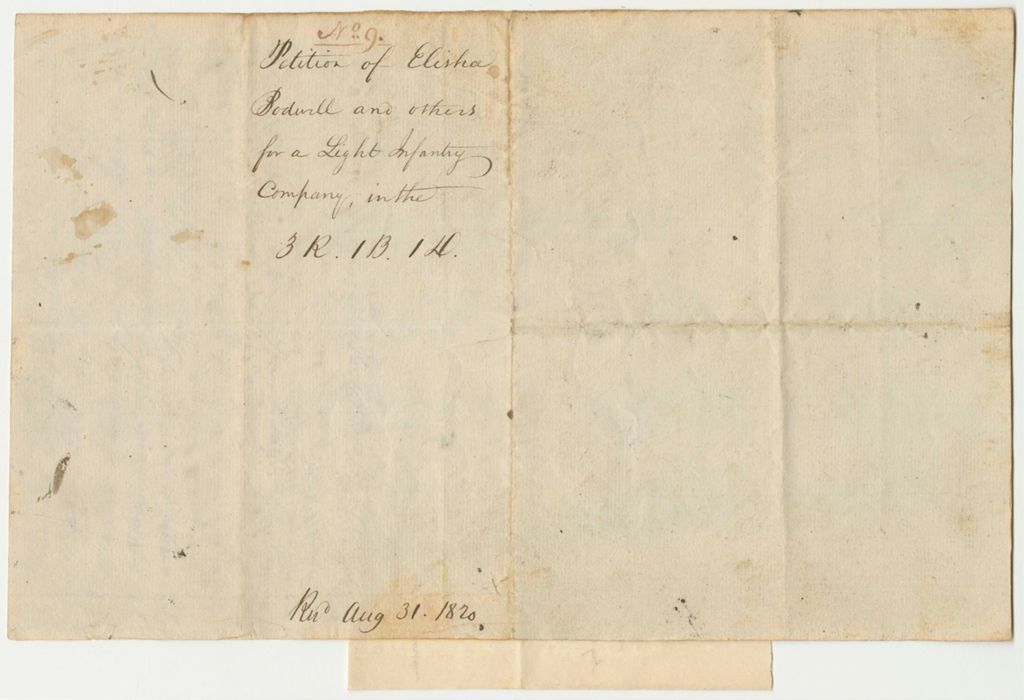 No 9.
Petition of Elisha
Bodwell and others
for a Light Infantry
Company, in the
3 R. 1 B. 1 D.
Recd Aug 31. 1820.